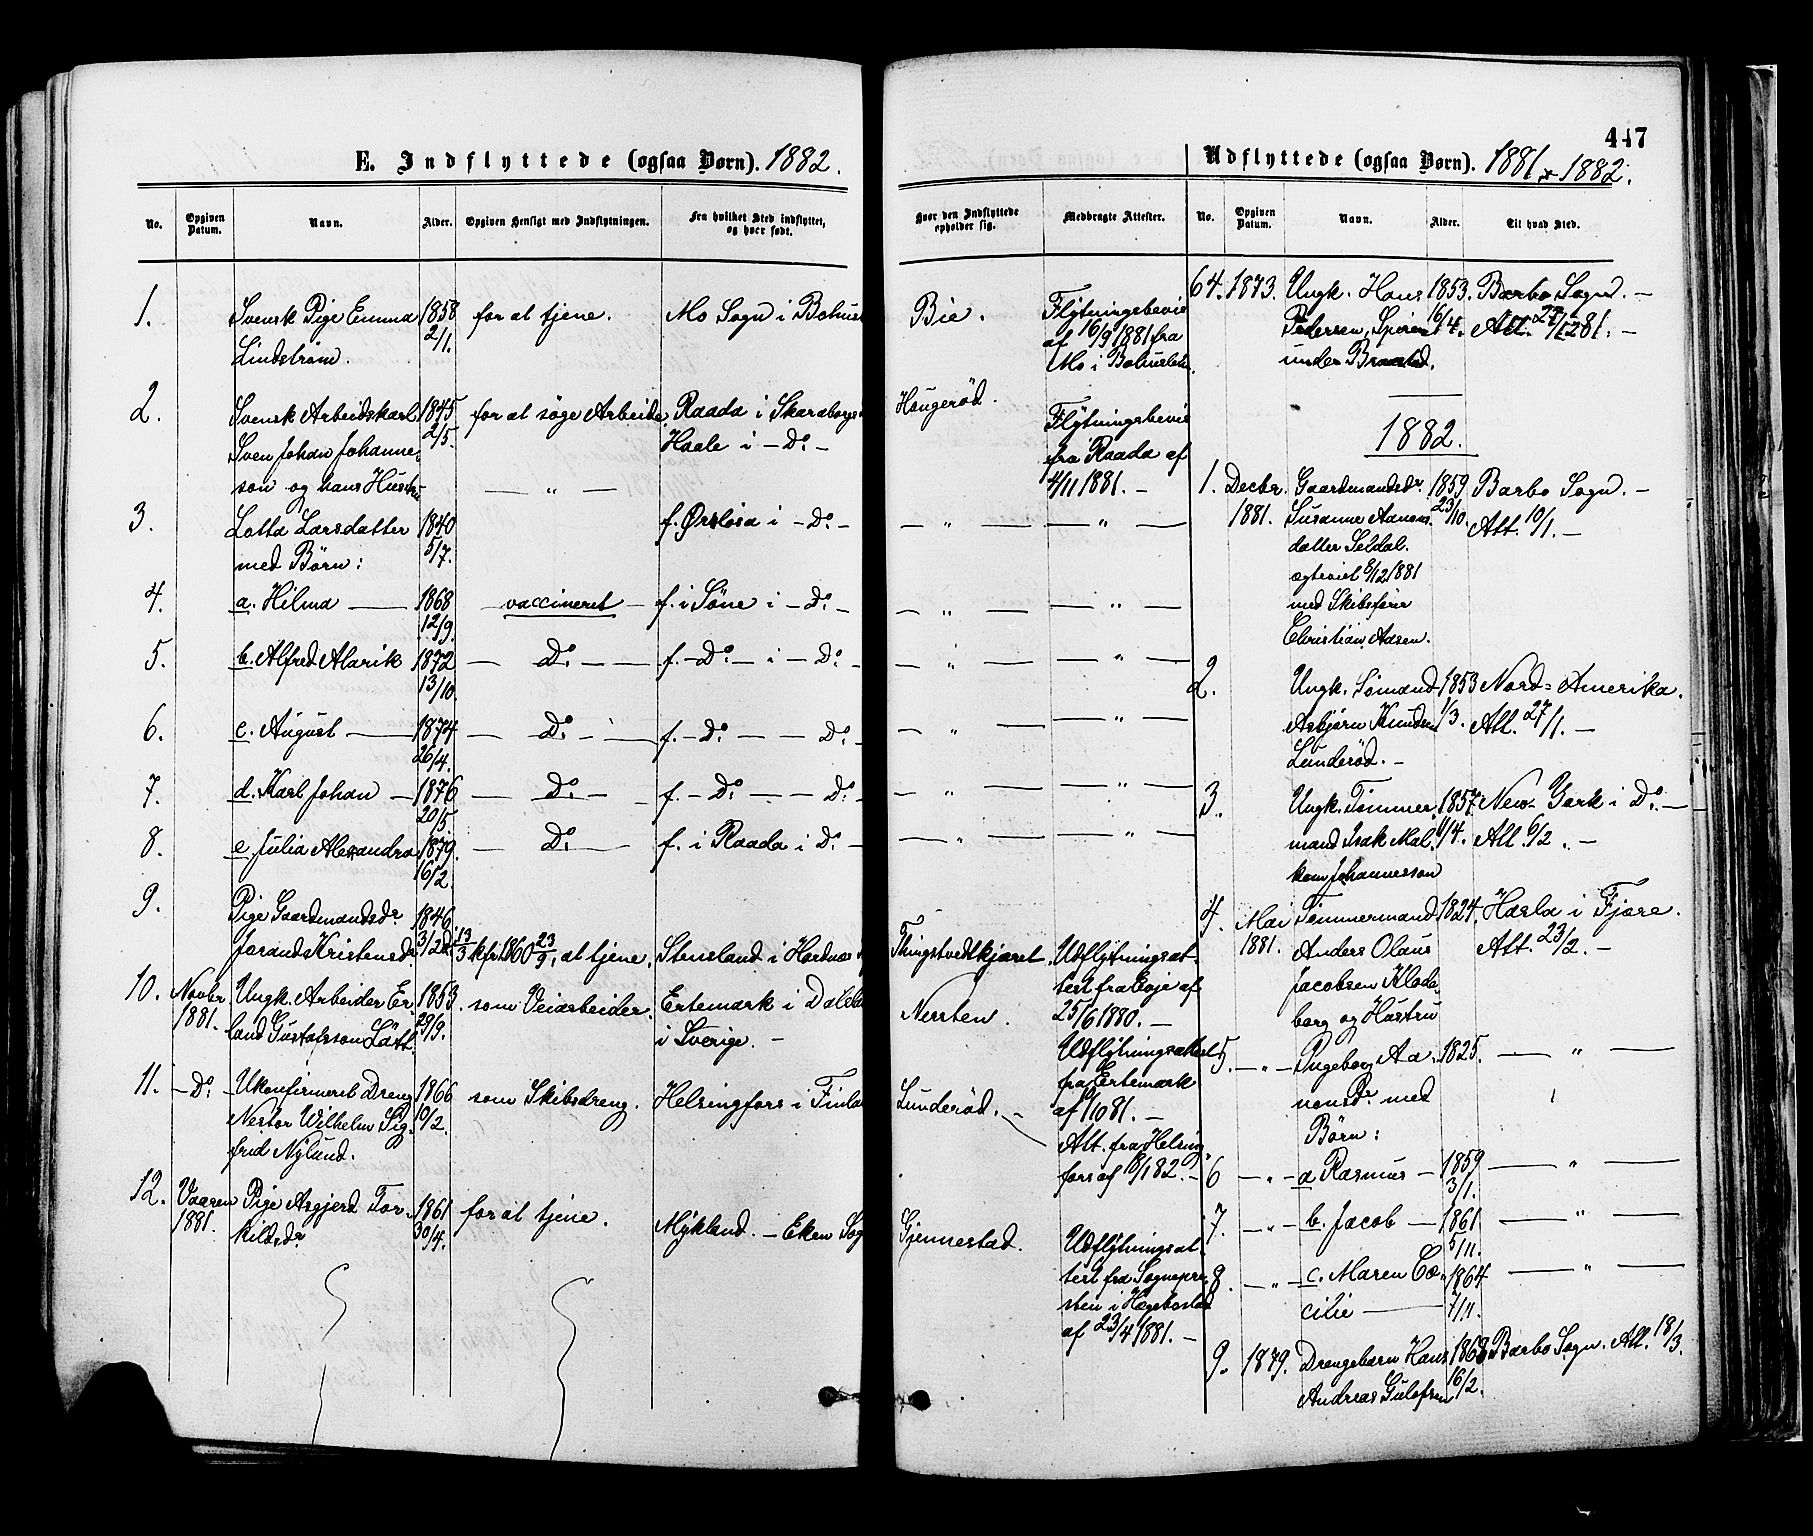 447
E. Indflyttede (ogsaa Børn). 1882.
No. Opgiven Datum. Navn. Alder. Opgiven Hensigt med Indflytningen. Fra hvilket Sted indflyttet, og hvor født.
1. Svensk Pige Emma 1858 for at tjene. Mo Sogn i Bohus
Lindstrøm. 2/1.
2. Svensk Arbeidskarl 1845 for at søge Arbeide. Raada i Skaraborgs
Sven Johan Johannes 2/5. Haele i - Do -
son og hans Hustru — " —
3. Lotta Larsdatter 1840 f. Ørsløsa i - Do -
med Børn: 5/7.
4. a. Hilma — 1868 — vaccineret — f. i Søne i - Do -
12/9.
5. b. Alfred Alarik 1872 — Do — f. - Do - i - Do -
13/10.
6. c. August — 1874 — Do — f. - Do - - Do -
26/4.
7. d. Karl Johan — 1876 — Do — f. - Do - - Do -
20/5
8. e Julia Alexandra 1879. — Do — f. i Raada i Do -
16/2.
9. Pige Gaardmandsdr 1846
Jorand Kristensdr 3/2 kfrt. 1860 23/9, at tjene. Stensland i
10. Novbr. 1881. Ungk. Arbeider Er- 1853. som Veiarbeider. Ertemark i Dalsla
land Gustafsson Lätt. 29/9. i Sverige. -
11. - Do - Ukonfirmeret Dreng 1866 som Skibsdreng. Helsingfors i Finla
Nestor Wilhelm Sig- 19/2.
frid Nylund.
12. Vaaren 1881. Pige Asgjerd Tor- 1861 for at tjene. Mykland. - Eken Sog
kildsdr 30/4.
Hvor den Indflyttede opholder sig. Medbragte Attester.
Bie. Flytningsbevis
af 16/9 1881 fra
Mo i Bohuslen.
Haugerød. Flytningsbevis
fra Raada af
4/11 1881. -
— " — — " —
— " — — " —
— " — — " —
— " — — " —
— " — — " —
— " — — " —
Thingstvedtkjæret. Udflytningsat-
test fra Evje af
25/6 1880. -
Nersten. Udflytningsattest
fra Ertemark
af 1/10 81. -
Lunderød. - Att. fra Helsing,
fors af 18/1 82. -
Gjennestad. Udflytningsat-
test fra Sognepre-
sten i Hægebostad
af 23/4 1881. -
Udflyttede (ogsaa Børn). 1881 & 1882.
No. Opgiven Datum. Navn. Alder. Til hvad Sted.
64. 1873. Ungk. Hans 1853. Barbo Sogn. -
Pedersen, 16/4. Att. 27/12 81. -
under Braastad.
1882.
1. Decbr. Gaardmandsdr 1859 Barbo Sogn. -
1881. Susanne Aanons 23/10. Att. 10/1. -
datter Seldal.
ægteviet 8/12 1881
med Skibsfører
Christian Aasen.
2. Ungk. Sømand 1853 Nord-Amerika.
Asbjørn Knudsen 1/3. Att. 27/1. -
Lunderød. -
3. Ungk. Tømmer, 1857. New-York i Do. -
mand Isak Mal, 1/4. Att. 6/2. -
kom Johannesson
4. Mai Tømmermand 1824. Harla i Fjære.
1881. Anders Olaus Att. 23/2. -
Jacobsen Klode-
borg og Hustru
5. - " - Ingeborg Aa- 1825. — " —
nonsdr. med
Børn:
6 - " - a Rasmus - 1859 — " —
3/1.
7. - " - b. Jacob - 1861 — " —
5/11.
8. - " - c. Maren Cæ- 1864 — " —
cilie — 7/11.
9. 1879. Drengebarn Hans 1868 Barbo Sogn. Att. 18/3.
Andreas Gulofsen 16/2.